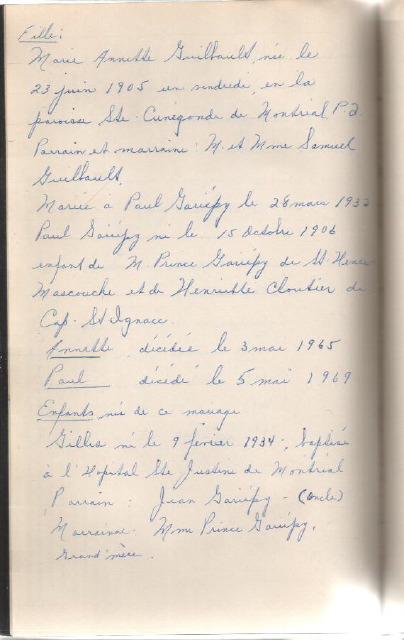 Fille:
Marie Annette Guilbault, née le
23 juin 1905 un vendredi, en la
paroisse Ste. Cunégonde de Montréal P.Q.
Parrain et marraine: M. et Mme Samuel
Guilbault.
Mariée à Paul Gariépy le 28 mars
Paul Gariépy né le 15 octobre 1906
enfant de M. Prince Gariépy de St. Henri
Mascouche et de Henriette Cloutier de
Cap. St Ignace.
Annette décédée le 3 mai 1965
Paul décédé le 5 mai 1969
Enfants nés de ce mariage
Gilles né le 9 février 1934, baptisé
à l'Hopital Ste Justine de Montréal
Parrain: Jean Gariépy - (oncle)
Marraine. Mme Prince Gariépy,
Grand'mère.